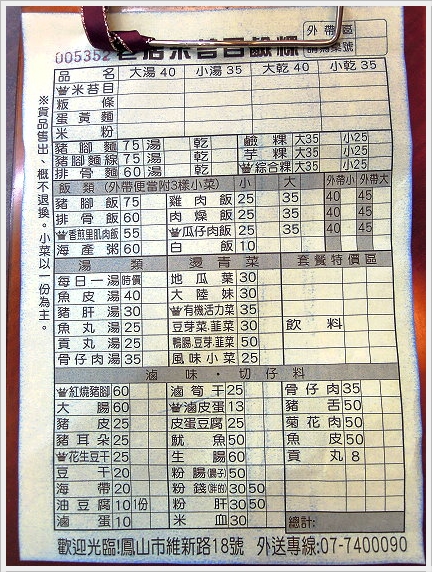 005352 老店米苔目鹼粿 外帶區 請寫桌號
品名 大湯40 小湯35 大乾40 小乾35
米苔目
粄條
蛋黃麵
米粉
豬腳麵75 湯 乾 鹼粿 大35 小25
豬腳麵線75 湯 乾 芋粿 大35 小25
排骨麵60 湯 乾 綜合粿 大35 小25
飯類(外帶便當附3樣小菜) 小 大 外帶小 外帶大
豬腳飯75 雞肉飯25 35 40 45
排骨飯60 肉燥飯25 35 40 45
香煎里肌肉飯55 瓜仔肉飯25 35 40 45
海產粥60 白飯10
湯類 燙青菜 套餐特價區
每日一湯 時價 地瓜葉30
魚皮湯40 大陸妹30
豬肝湯30 有機活力菜35
魚丸湯25 豆芽菜.韭菜30 飲料
貢丸湯25 鴨腸.豆芽.韭菜50
骨仔肉湯35 風味小菜25
滷味・切仔料
紅燒豬腳60 滷筍干25 骨仔肉35
大腸60 滷皮蛋13 豬舌50
豬皮25 皮蛋豆腐25 菊花肉50
豬耳朵25 魷魚50 魚皮50
花生豆干25 生腸60 貢丸8
豆干20 粉腸(腸子)50
海帶20 粉錢(胖的)30 50
油豆腐10 1份 粉肝30 50
滷蛋10 米血30 總計:
歡迎光臨!鳳山市維新路18號 外送專線:07-7400090
※貨品售出、概不退換。小菜以一份為主。